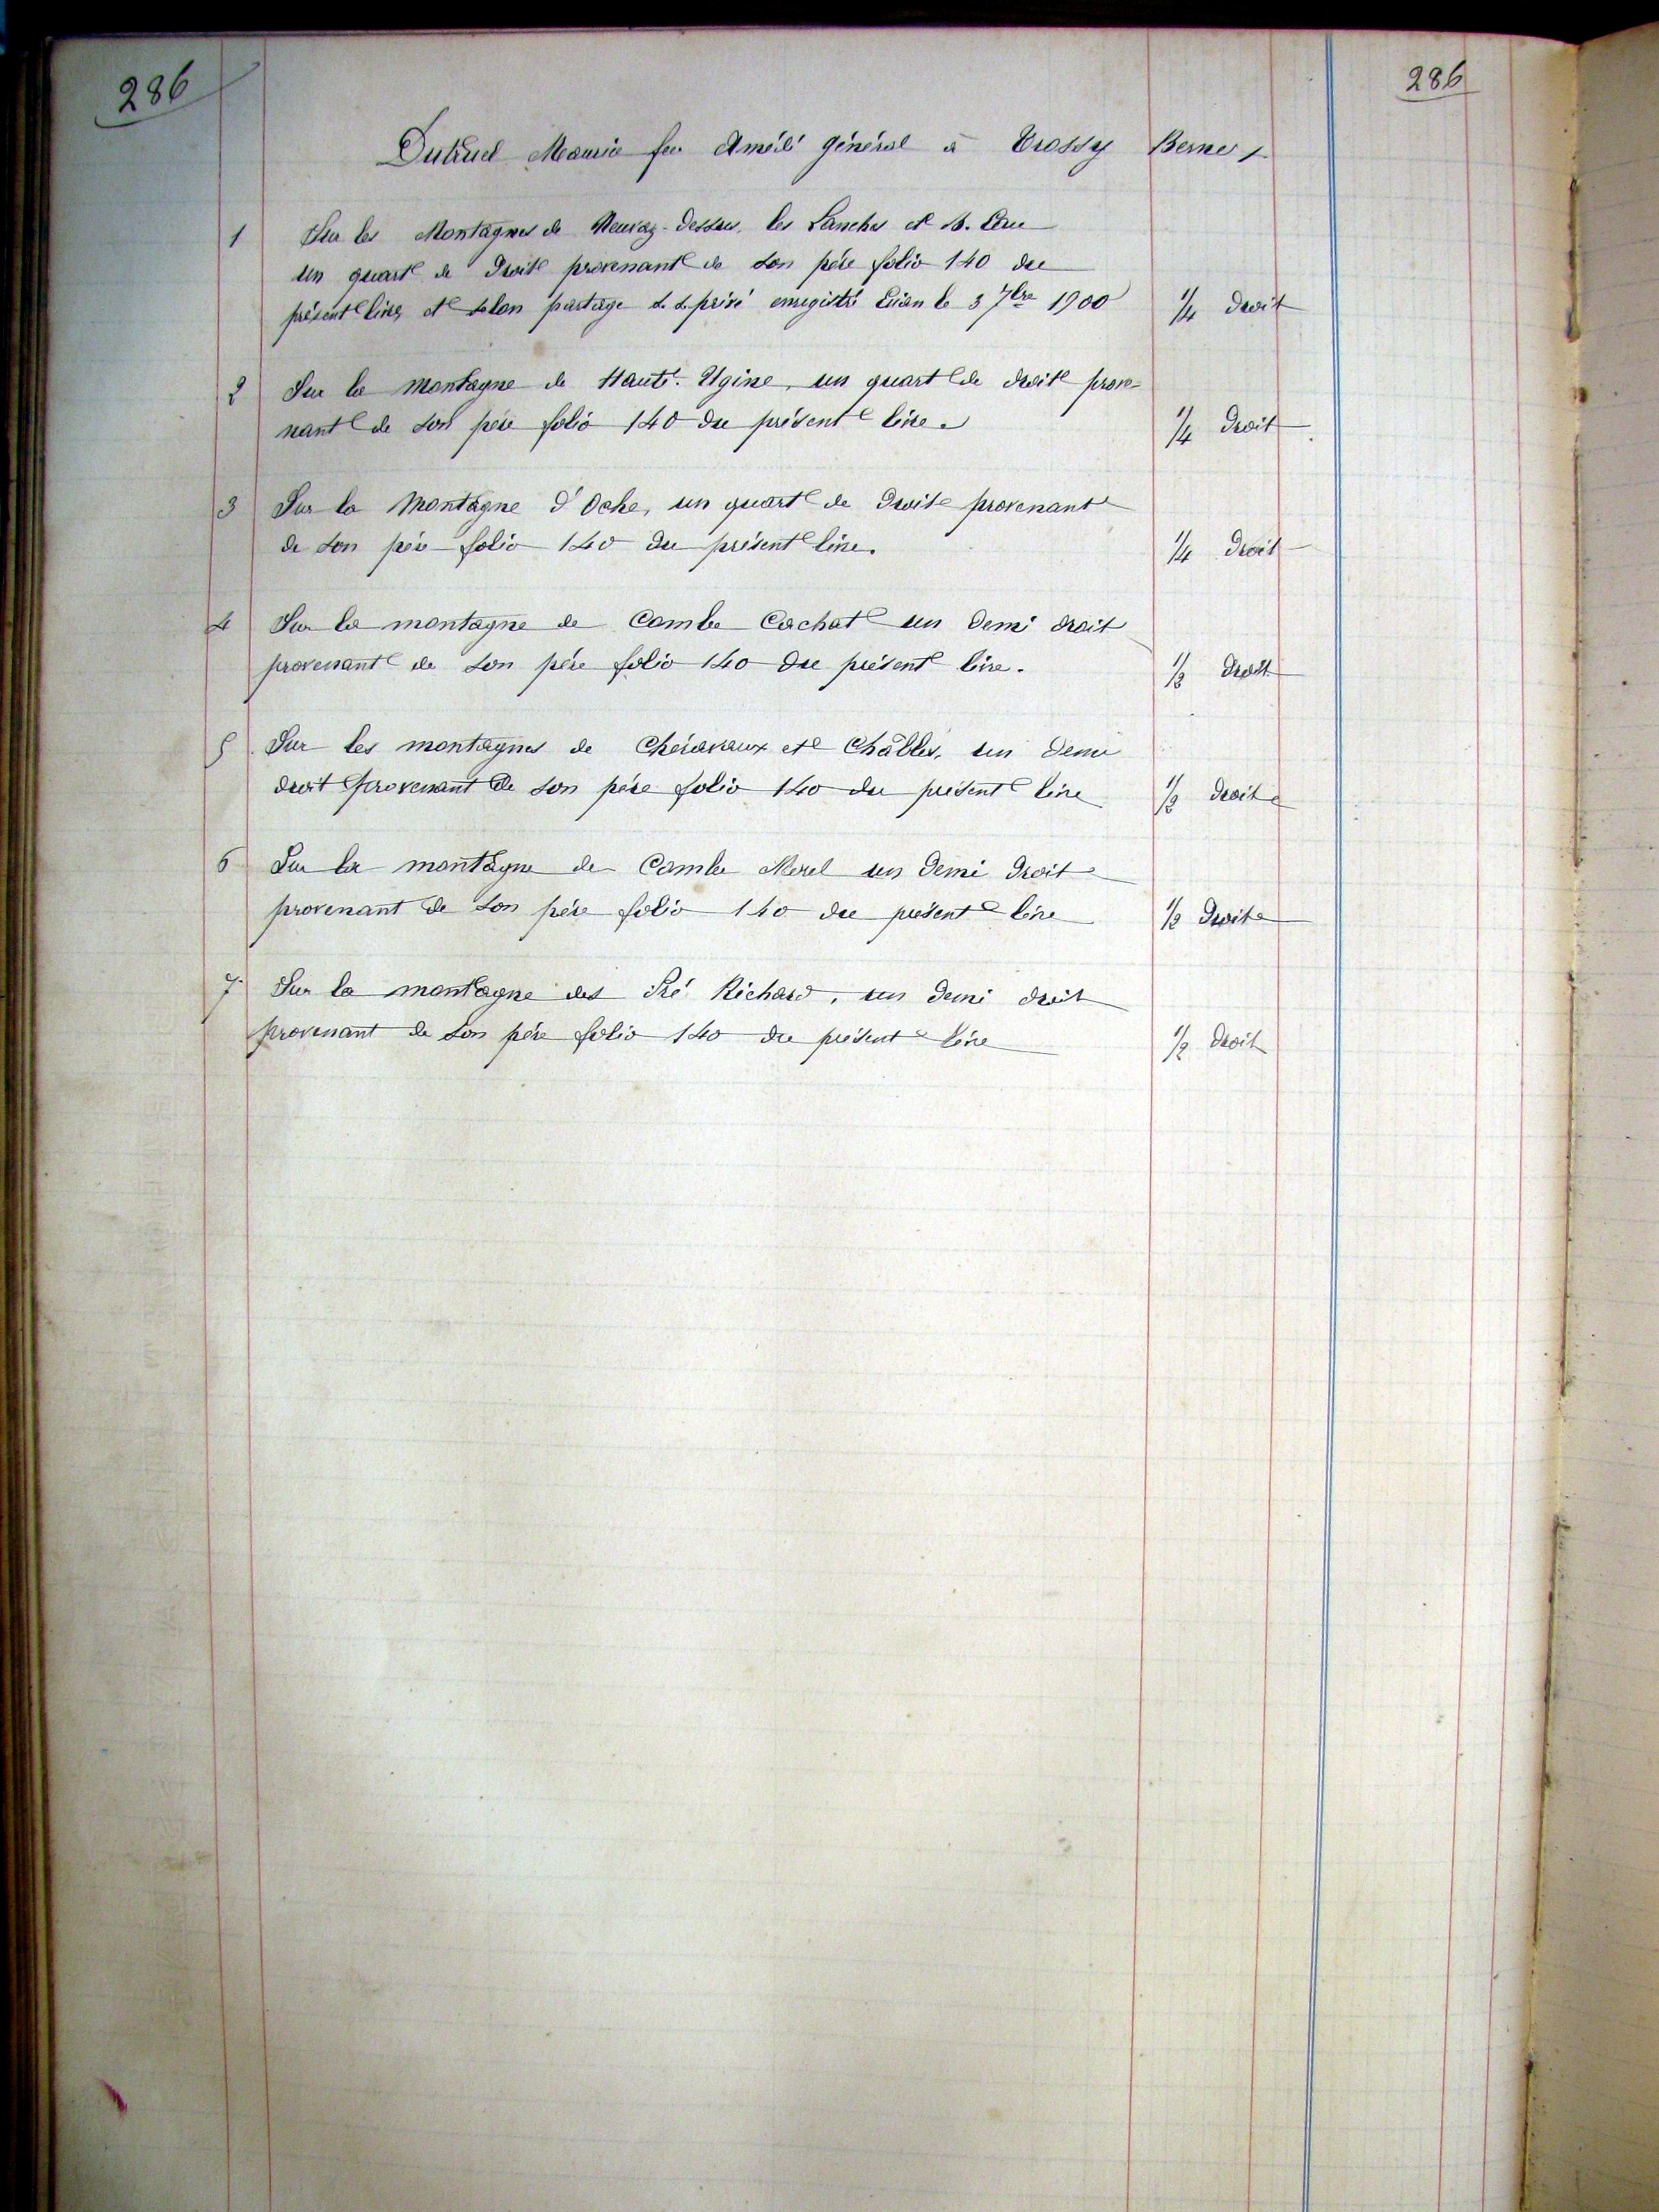 286
286
Dutruel Maurice feu Amédé général à Trossy Bernex
1 Sur les Montagnes de Neuvaz-Dessus, les Lanches et
un quart de Droit provenant de son père folio 140 du
présent livre, et selon partage s. s. privé enregistré Evian le 3 7bre 1900 1/4 droit
2 Sur la montagne de Haute-Ugine, un quart de droit prove-
nant de son père folio 140 du présent livre. 1/4 Droit
3 Sur la Montagne d'Oche, un quart de Droit provenant
de son père folio 140 du présent livre. 1/4 Droit
4 Sur la montagne de Combe Cachat un Demi droit
provenant de son père folio 140 du présent livre. 1/2 Droit
5 Sur les montagnes de Chéravaux et Châbles, un Demi
droit provenant de son père folio 140 du présent livre 1/2 droit
6 Sur la montagne de Combe Morel un Demi Droit
provenant de son père folio 140 du présent livre 1/2 Droit
7 Sur la montagne des Pré Richard, un demi droit
provenant de son père folio 140 du présent livre 1/2 Droit